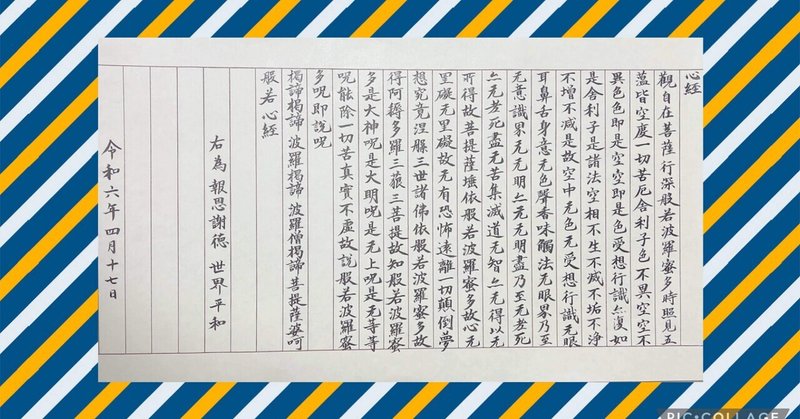 心経
觀自在菩薩行深般若波羅蜜多時照見五
蘊皆空度一切苦厄舍利子色不異空空不
異色色即是空空即是色受想行識亦復如
是舍利子是諸法空相不生不滅不垢不浄
不增不減是故空中无色无受想行識无眼
耳鼻舌身意无色聲香味觸法无眼界乃至
无意識界无无明亦无无明盡乃至无老死
亦无老死盡无苦集滅道无智亦无得以无
所得故菩提薩埵依般若波羅蜜多故心无
罣礙无罣礙故无有恐怖遠離一切顛倒夢
想究竟涅槃三世諸佛依般若波羅蜜多故
得阿耨多羅三藐三菩提故知般若波羅蜜
多是大神呪是大明呪是无上呪是无等等
呪能除一切苦真實不虛故說般若波羅蜜
多呪即說呪
揭諦揭諦 波羅揭諦 波羅僧揭諦 菩提薩婆呵
般若心経
右為報恩謝德 世界平和
令和六年四月十七日
PIC•COLLAGE